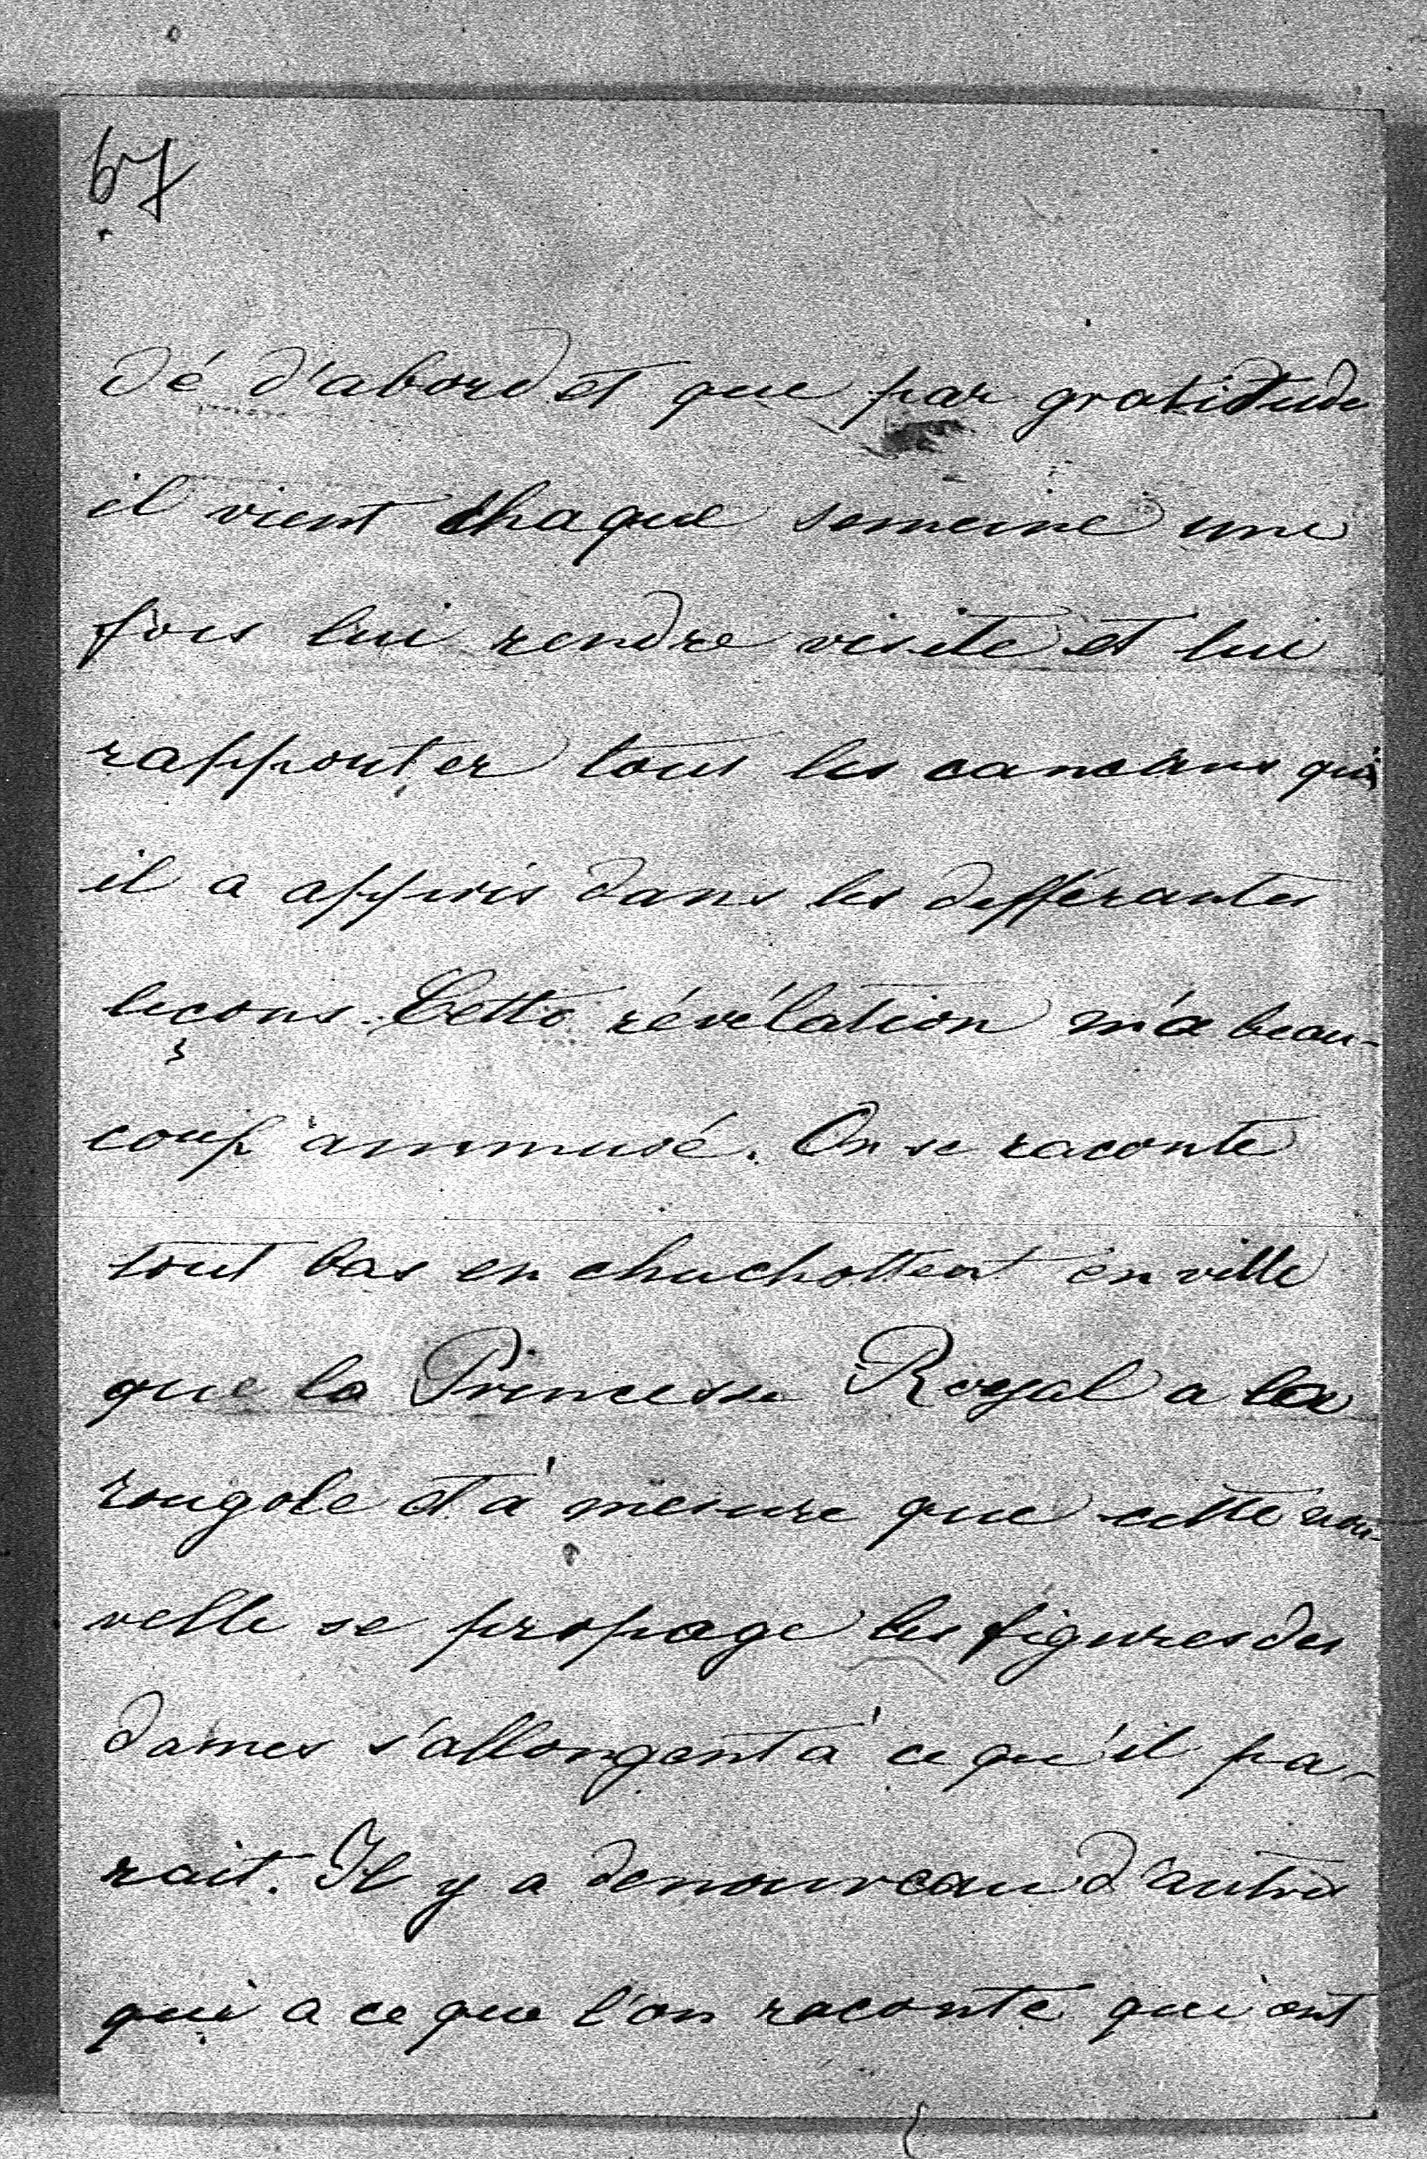 67
dé d'abord et que par gratitude
il vient chaque semeine une
fois lui rendre visite et lui
rapporter tous les cancans qu'
il a appris dans les differantes
leçons. Cette révélation m'a beau-
coup ammusé. On se raconte
tout bas en chuchottent en ville
que la Princesse Royal a la
rougole et à mesure que cette nou-
velle se propage les figures des
dames s'allongent à ce qu'il pa-
rait. Il y a denouveau d'autres
qui a ce que l'on raconte qui ont